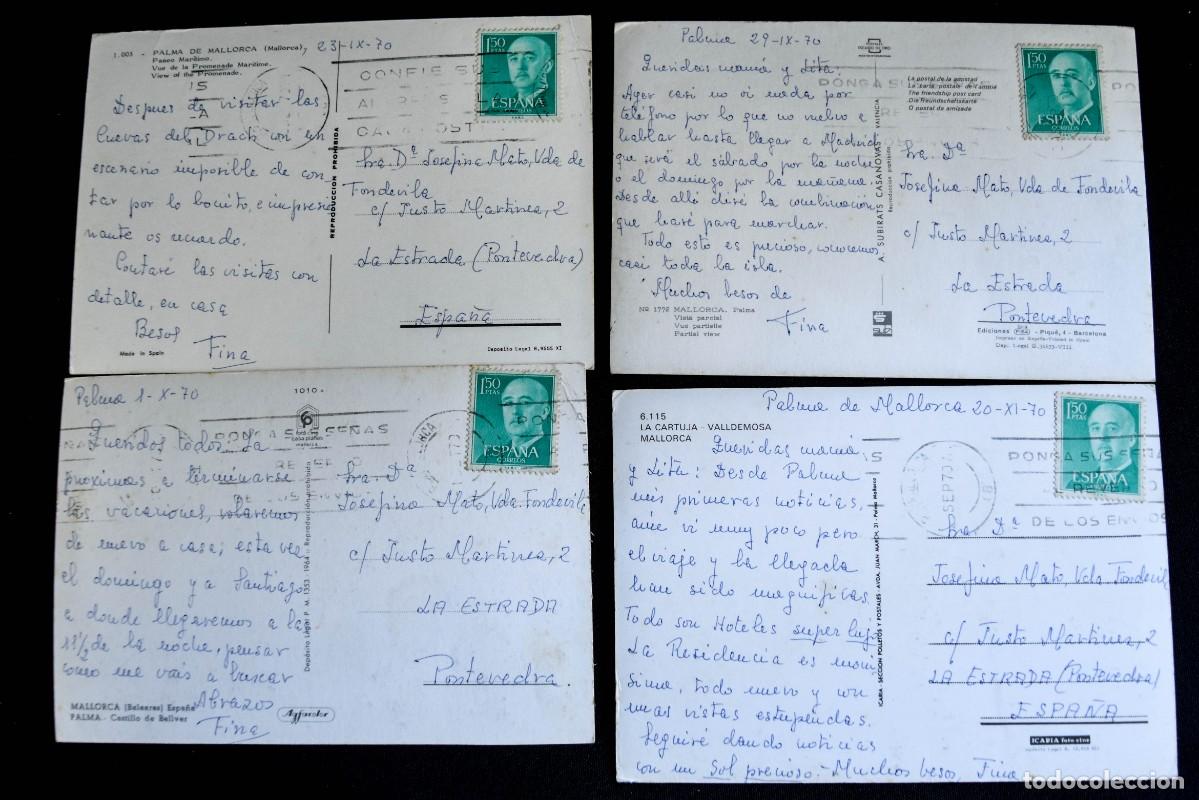 1.003 - PALMA DE MALLORCA (Mallorca),
Paseo Marítimo.
Vue de la Promenade Maritime.
View of the Promenade.
23-IX-70
Despues de visitar las
Cuevas del Drach con un
escenario imposible de con
tar por lo bonito, e impresio
nante os recuerdo.
Contaré las visitas con
detalle, en casa
Besos
Fina
Made in Spain
REPRODUCCION PROHIBIDA
CONFIE SUS
1'50
PTAS
ESPAÑA
CORREOS
Sra Dª Josefina Mato, Vda de
Fondevila
c/ Justo Martinez, 2
La Estrada (Pontevedra)
España
Depósito Legal B. 9555 XI
Palma 29-IX-70
Queridas mamá y Lita:
Ayer casi no oí nada por
teléfono por lo que no vuelvo a
hablar hasta llegar a Madrid
que será el sábado por la noche
o el domingo por la mañana.
Desde allí diré la combinación
que haré para marchar.
Todo esto es precioso, conocemos
casi toda la isla.
Muchos besos de
Fina
Nº 1772 MALLORCA. Palma
Vista parcial
Vue partielle
Partial view
A. SUBIRATS CASANOVAS VALENCIA
Reproducción prohibida
La postal de la amistad
La carte postale de l'amitié
The friendship post card
Die freundschaftskarte
O postal da amizade
PONGA SUS SEÑAS
1'50
PTAS
ESPAÑA
CORREOS
Sra. Dª
Josefina Mato, Vda de Fondevila
c/ Justo Martinez, 2
La Estrada
Pontevedra
Ediciones FISA - Piqué, 4 - Barcelona
Dep. Legal B. 34633-VIII
Palma 1-X-70
1010
foto
casa planas
mallorca
Queridos todos: Ya
proximas a terminarse
las vacaciones, volaremos
de nuevo a casa; esta vez
el domingo y a Santiago
a donde llegaremos a la
11½ de la noche, pensar
como me vais a buscar
Abrazos
Fina
MALLORCA (Baleares) España
PALMA.- Castillo de Bellver
Agfacolor
Depósito Legal P. M. 1353 - 1966
Reproducción prohibida
PONGA SUS SEÑAS
1'50
PTAS
ESPAÑA
CORREOS
Sra. Dª
Josefina Mato, Vda. Fondevila
c/ Justo Martinez, 2
LA ESTRADA
Pontevedra
6.115
LA CARTUJA - VALLDEMOSA
MALLORCA
Palma de Mallorca 20-XI-70
Queridas mamá
y Lita: Desde Palma
mis primeras noticias,
aún vi muy poco pero
el viaje y la llegada
han sido magníficas.
Todo son Hoteles super lujo.
La Residencia es moni
sima, todo nuevo y con
unas vistas estupendas.
Seguiré dando noticias
con un Sol precioso.- Muchos besos, Fina
ICARIA - SECCION FOLLETOS Y POSTALES - AVDA. JUAN MARCH, 31 - Palma Mallorca
SEP 70
PONGA SUS SEÑA
DE LOS ENVIOS
1'50
PTAS
ESPAÑA
Sra. Dª
Josefina Mato, Vda Fondevila
c/ Justo Martinez, 2
LA ESTRADA (Pontevedra)
ESPAÑA
ICARIA foto cine
todocoleccion